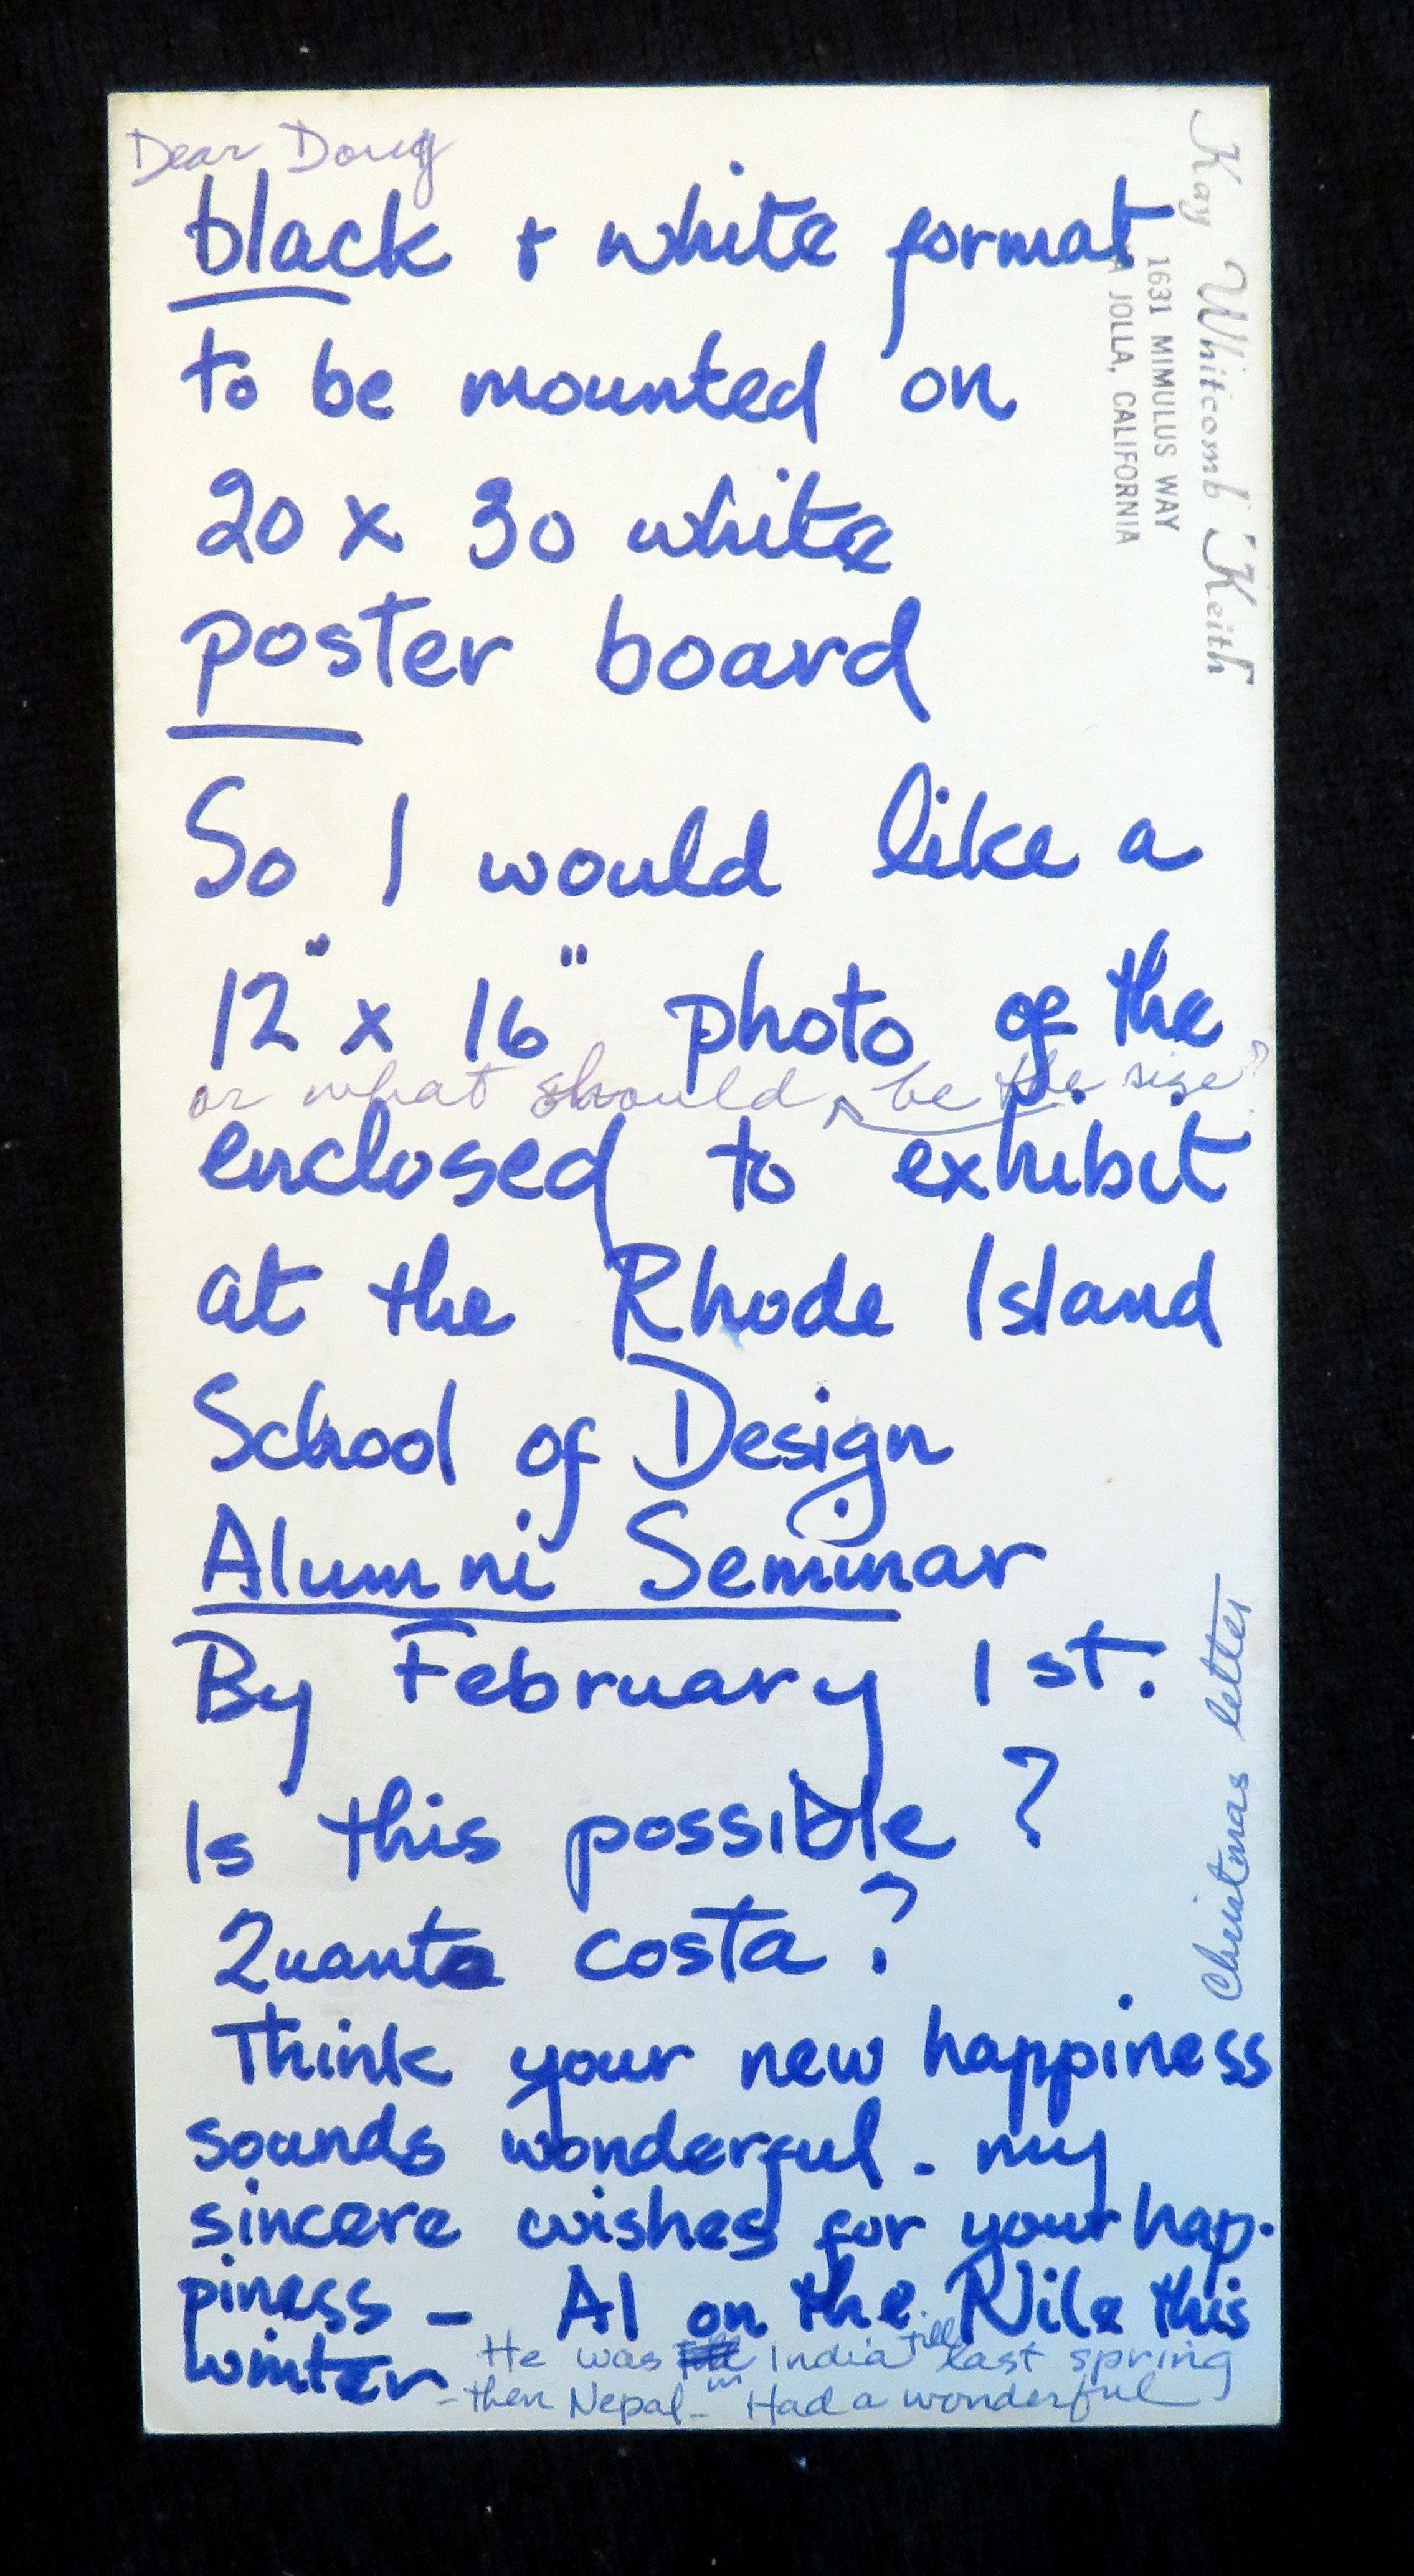 Dear Doug
black + white format
to be mounted on
20 x 30 white
poster board
So I would like a
12" x 16" photo of the
or what should be the size?
enclosed to exhibit
at the Rhode Island
School of Design
Alumni Seminar
By February 1st.
Is this possible?
Quanto costa?
Think your new happiness
sounds wonderful. my
sincere wishes for your hap-
piness - Al on the Nile this
winter He was in India till last spring
- then Nepal - Had a wonderful
Kay Whitcomb Keith
1631 MIMULUS WAY
LA JOLLA, CALIFORNIA
Christmas letter